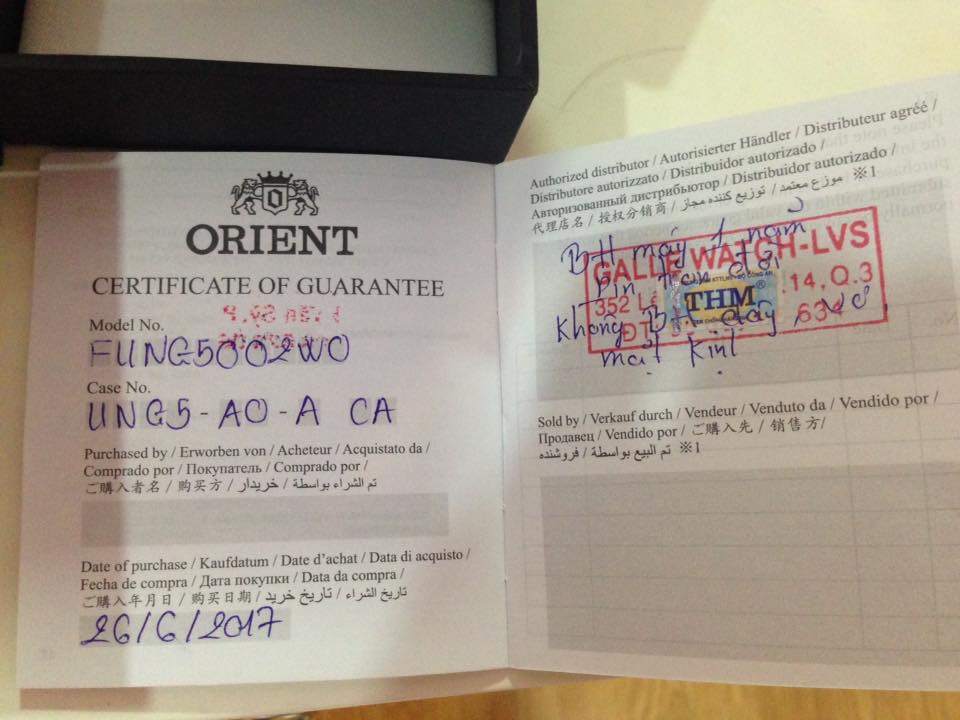 ORIENT
CERTIFICATE OF GUARANTEE
Model No.
FUNG5002W0
Case No.
UNG5-A0-A CA
Purchased by / Erworben von / Acheteur / Acquistato da /
Comprado por / Покупатель / Comprado por /
ご購入者名 / 购买方 / خریدار / تم الشراء بواسطة
Date of purchase / Kaufdatum / Date d'achat / Data di acquisto /
Fecha de compra / Дата покупки / Data da compra /
ご購入年月日 / 购买日期 / تاریخ خرید / تاريخ الشراء
26/6/2017
Authorized distributor / Autorisierter Händler / Distributeur agréé /
Distributore autorizzato / Distribuidor autorizado /
Авторизованный дистрибьютор / Distribuidor autorizado /
代理店名 / 授权分销商 / توزیع کننده مجاز / موزع معتمد ※1
BH máy 1 năm
pin trọn đời
Không BH dây, vỏ
mặt kính
GALLE WATCH-LVS
352 14, Q.3
THM®
ĐT 634
Sold by / Verkauf durch / Vendeur / Venduto da / Vendido por /
Продавец / Vendido por / ご購入先 / 销售方/
فروشنده / تم البيع بواسطة ※1